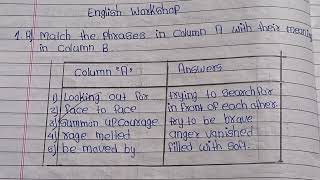 English Workshop
1. A) Match the phrases in column A with their meaning
in column B.
Column "A" Answers
1) Looking out for trying to search for
2) face to face in front of each other
3) summon up courage try to be brave
4) rage melted anger vanished
5) be moved by filled with